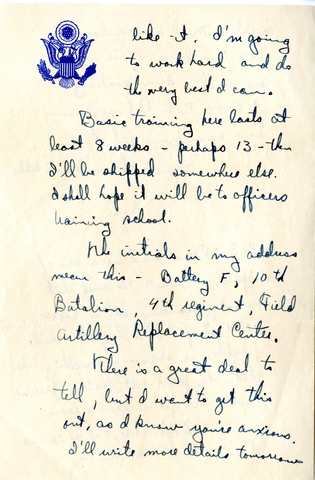 like it. I'm going
to work hard and do
the very best I can.
Basic training here lasts at
least 8 weeks - perhaps 13 - then
I'll be shipped somewhere else.
I shall hope it will be to officers
training school.
The initials in my address
mean this - Battery F, 10th
Batalion, 4th regiment, Field
Artillery Replacement Center.
There is a great deal to
tell, but I want to get this
out, as I know you're anxious.
I'll write more details tomorrow